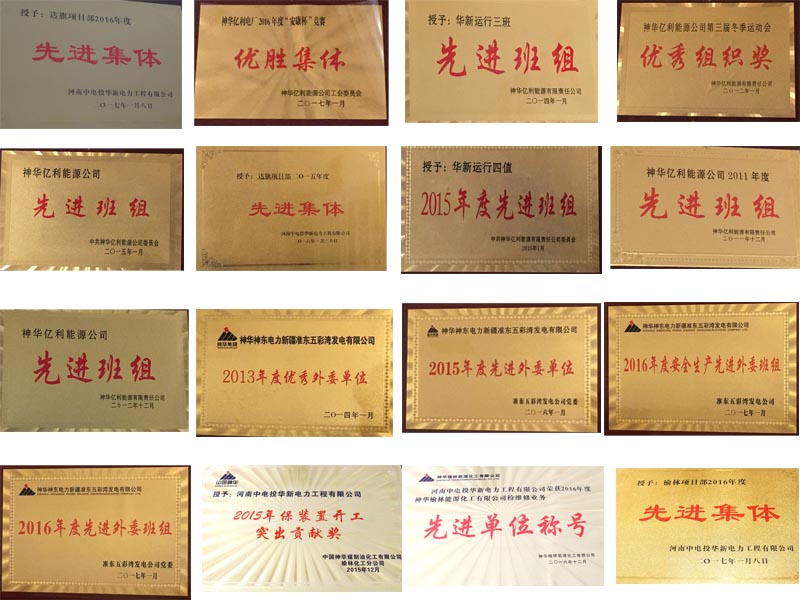 授予：达旗项目部2016年度
先进集体
河南中电投华新电力工程有限公司
二〇一七年一月八日
神华亿利电厂2016年度"安康杯"竞赛
优胜集体
神华亿利能源公司工会委员会
二〇一七年一月
授予：华新运行三班
先进班组
神华亿利能源有限责任公司
二〇一四年一月
神华亿利能源公司第三届冬季运动会
优秀组织奖
神华亿利能源有限责任公司
二〇一二年一月
神华亿利能源公司
先进班组
中共神华亿利能源公司委员会
二〇一五年一月
授予：达旗项目部二〇一五年度
先进集体
河南中电投华新电力工程有限公司
二〇一六年一月二十日
授予：华新运行四值
2015年度先进班组
中共神华亿利能源有限责任公司委员会
2016年1月
神华亿利能源公司2011年度
先进班组
神华亿利能源有限责任公司
二〇一一年十二月
神华亿利能源公司
先进班组
神华亿利能源有限责任公司
二〇一二年十二月
神华集团
神华神东电力新疆准东五彩湾发电有限公司
2013年度优秀外委单位
二〇一四年一月
神华神东电力新疆准东五彩湾发电有限公司
2015年度先进外委单位
准东五彩湾发电公司党委
二〇一六年一月
神华神东电力新疆准东五彩湾发电有限公司
2016年度安全生产先进外委班组
准东五彩湾发电公司
二〇一七年一月
神华神东电力新疆准东五彩湾发电有限公司
2016年度先进外委班组
准东五彩湾发电公司党委
二〇一七年一月
中国神华
授予：河南中电投华新电力工程有限公司
2015年保装置开工
突出贡献奖
中国神华煤制油化工有限公司
榆林化工分公司
2015年12月
神华榆林能源化工有限公司
河南中电投华新电力工程有限公司荣获2016年度
神华榆林能源化工有限公司检维修业务
先进单位称号
神华榆林能源化工有限公司
二〇一六年十二月
授予：榆林项目部2016年度
先进集体
河南中电投华新电力工程有限公司
二〇一七年一月八日